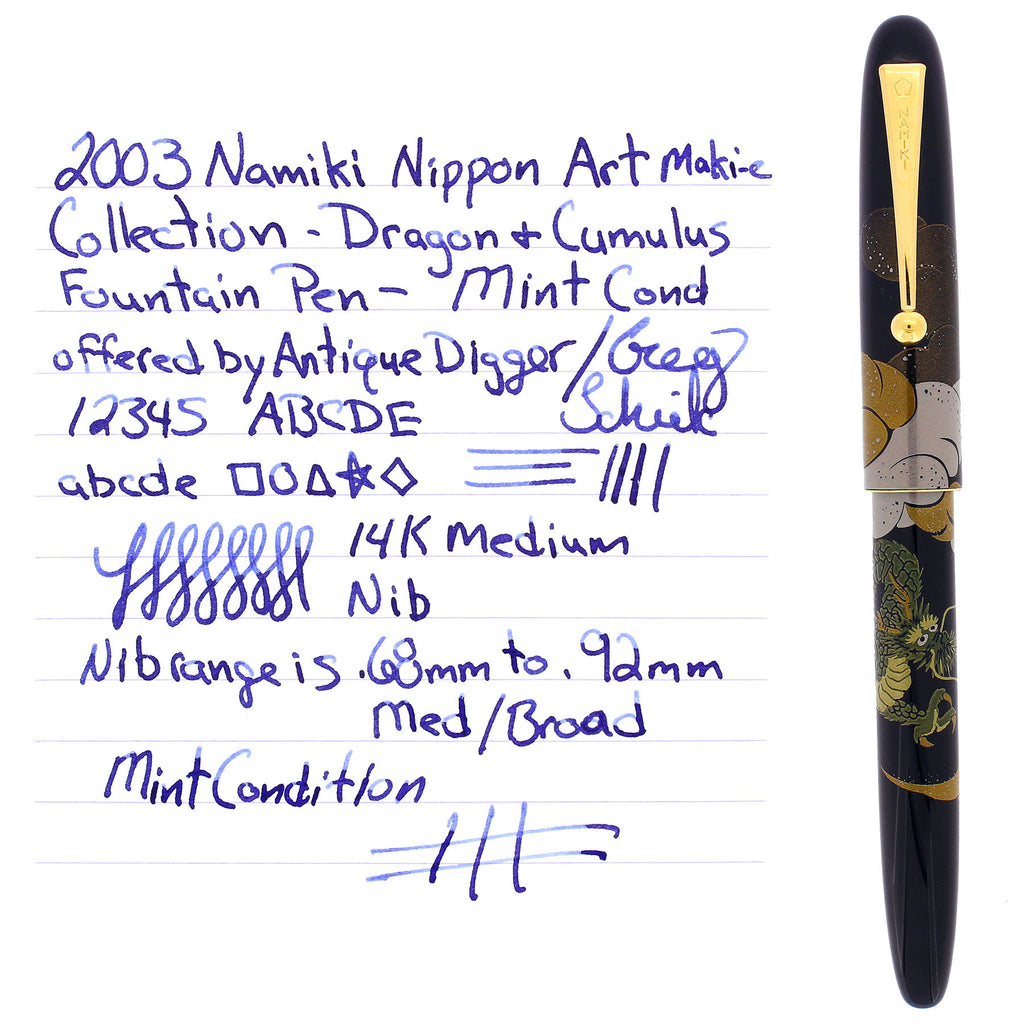 2003 Namiki Nippon Art Maki-e
Collection - Dragon + Cumulus
Fountain Pen - Mint Cond
offered by Antique Digger/Gregg
12345 ABCDE
abcde
14K Medium
Nib
Nib range is .68mm to .92mm
Med/Broad
Mint Condition
NAMIKI